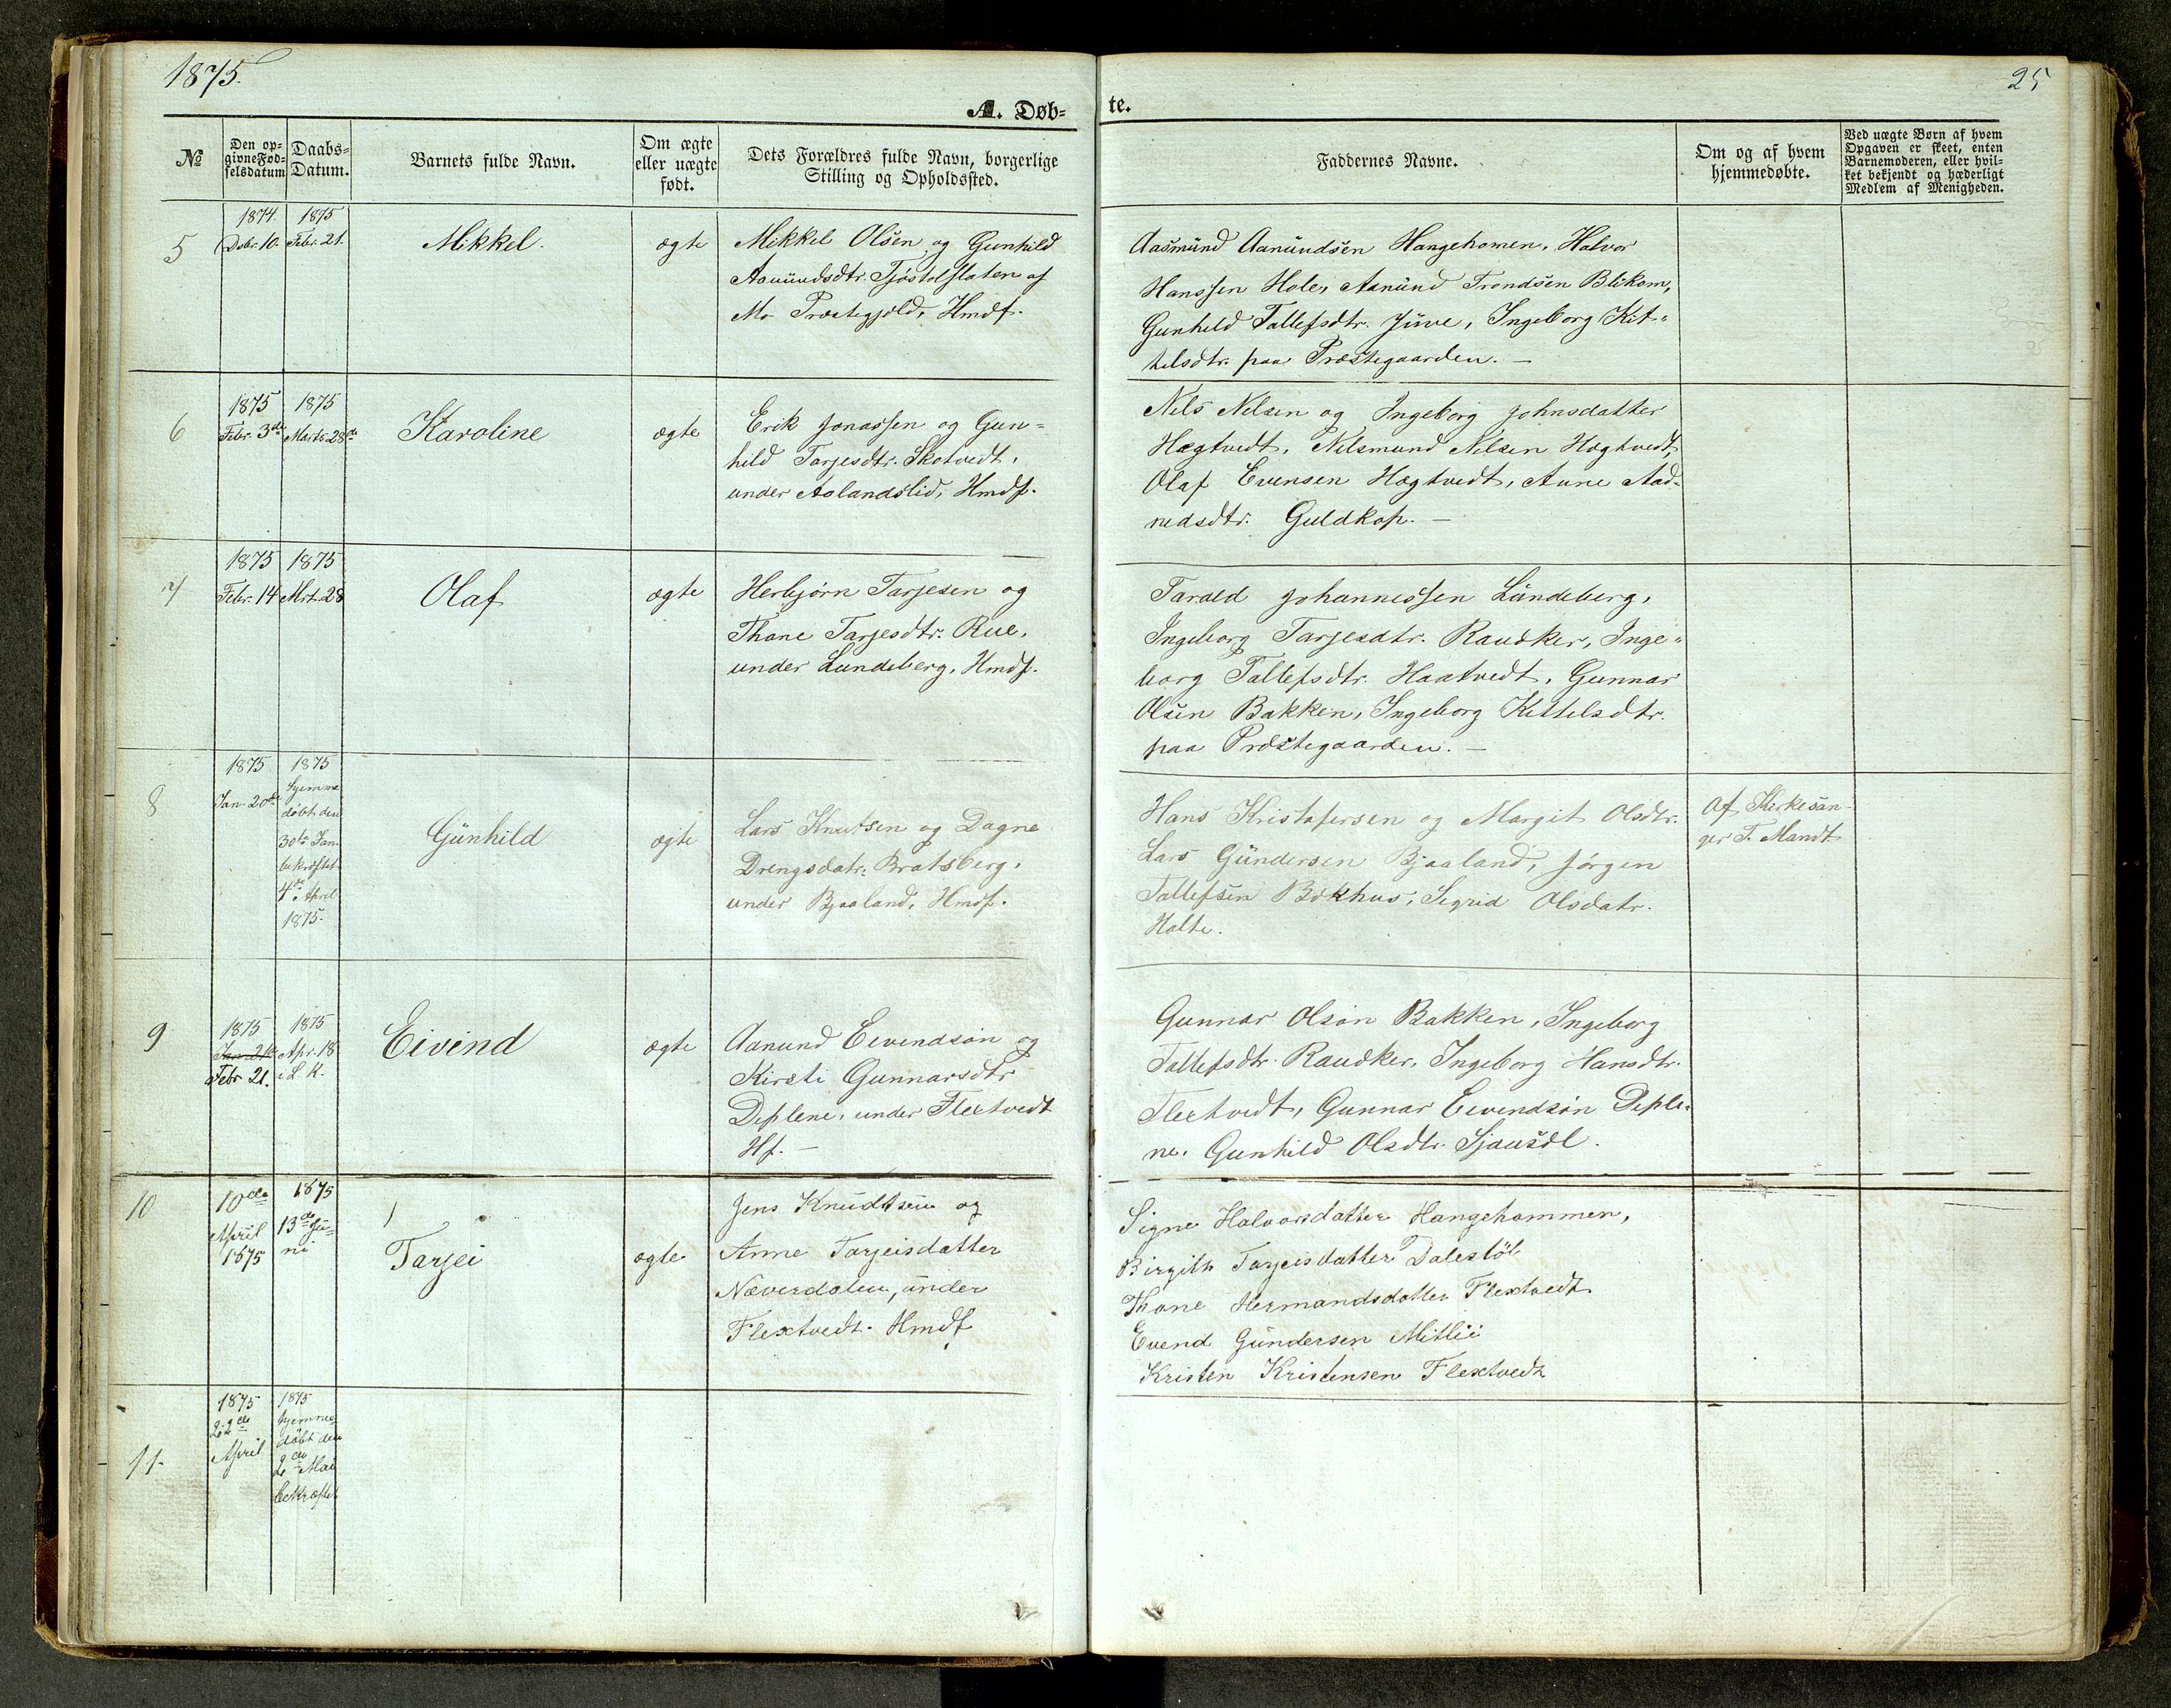 1875.
25
A. Døb-
te.
№
Den op-
givne Fød-
selsdatum
Daabs-
Datum.
Barnets fulde Navn.
Om ægte
eller uægte
født.
Dets Forældres fulde Navn, borgerlige
Stilling og Opholdssted.
Faddernes Navne.
Om og af hvem
hjemmedøbte.
Ved uægte Børn af hvem
Opgaven er skeet, enten
Barnemoderen, eller hvil-
ket bekjendt og hæderligt
Medlem af Menigheden.
5
1874.
Debr. 10.
1875
Febr. 21.
Mikkel.
ægte
Mikkel Olsen og Gunhild
Aanundsdtr. Tjøstolflaten af
Mo Præstegjeld, Hmdf.
Aasmund Aanundsen Hangehomen, Halvor
Hanssen Hole, Aanund Trondsen Blikom,
Gunhild Tallefsdtr. Juve, Ingeborg Kit-
telsdtr. paa Præstegaarden. —
6
1875
Febr. 3de
1875
Marts 28de
Karoline
ægte
Erik Jonassen og Gun=
hild Tarjesdtr. Skotvedt,
under Aalandslid, Hmdf.
Nils Nelsen og Ingeborg Johnsdatter
Hægtvedt, Nilsmund Nilsen Hægtvedt,
Olaf Evensen Hægtvedt, Aune Aad-
nedsdtr. Guldkop. —
7
1875
Febr. 14
1875
Mrt. 28
Olaf
ægte
Herbjørn Tarjesen og
Thone Tarjesdtr. Rue,
under Lundeberg, Hmdf.
Tarald Johannessen Lundeberg,
Ingeborg Tarjesdtr. Raudker, Inge-
borg Tallefsdtr. Haatvedt, Gunnar
Olsen Bakken, Ingeborg Kittelsdtr.
paa Præstegaarden. —
8
1875
Jan. 20de
1875
Hjemme
døbt den
30te Jan.
bekræftet
4de April
1875.
Gunhild
ægte
Lars Knutsen og Dagne
Drengsdatr. Bratsberg,
under Bjaaland, Hmdf.
Hans Kristofersen og Margit Olsdtr.
Lars Gundersen Bjaaland, Jørgen
Tallefsen Bøkhus, Sigrid Olsdatr.
Holte.
Af Kirkesan-
ger T. Mandt
9
1875
Febr 21.
1875
Apr. 18
i L. K.
Eivind
ægte
Aanund Eevindsøn og
Kirsti Gunnarsdtr
Deplene, under Flextvedt
Hf. —
Gunnar Olsøn Bakken, Ingeborg
Tallefsdtr. Raudker, Ingeborg Hansdtr.
Flextvedt, Gunnar Eevindsøn Deple-
ne, Gunhild Olsdtr. Sjausdl.
10
10de
April
1875
1875
13de Ju-
ni
Tarjei
ægte
Jens Knudtsen og
Anne Tarjeisdatter
Næverdalen, under
Flextvedt. Hmdf
Signe Halvorsdatter Hangehommen,
Birgith Tarjeisdatter Dalestøl
Thone Hermandsdatter Flextvedt
Evend Gundersen Mitlii
Kristen Kristensen Flextvedt
11
1875
22de
April
1875
hjemme-
døbt den
2de Mai
bekræftet